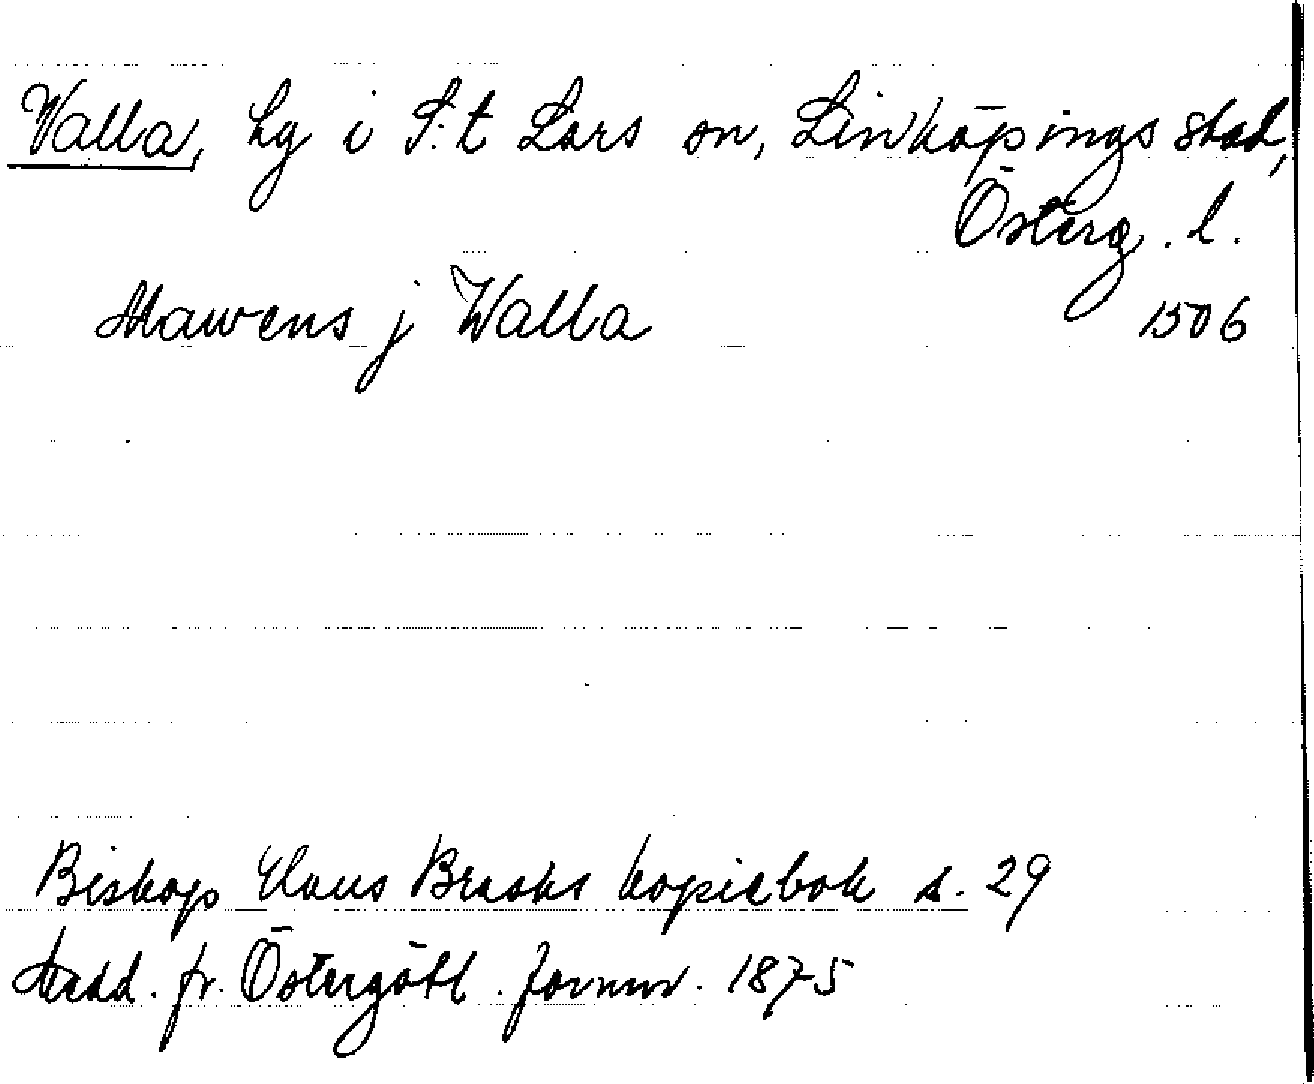 Valla, hg i S:t Lars sn, Linköpings stad,
Österg. l.
Mawens j Walla 1506
Biskop Hans Brasks kopiebok s. 29
Medd. fr. Östergötl. fornmr. 1875